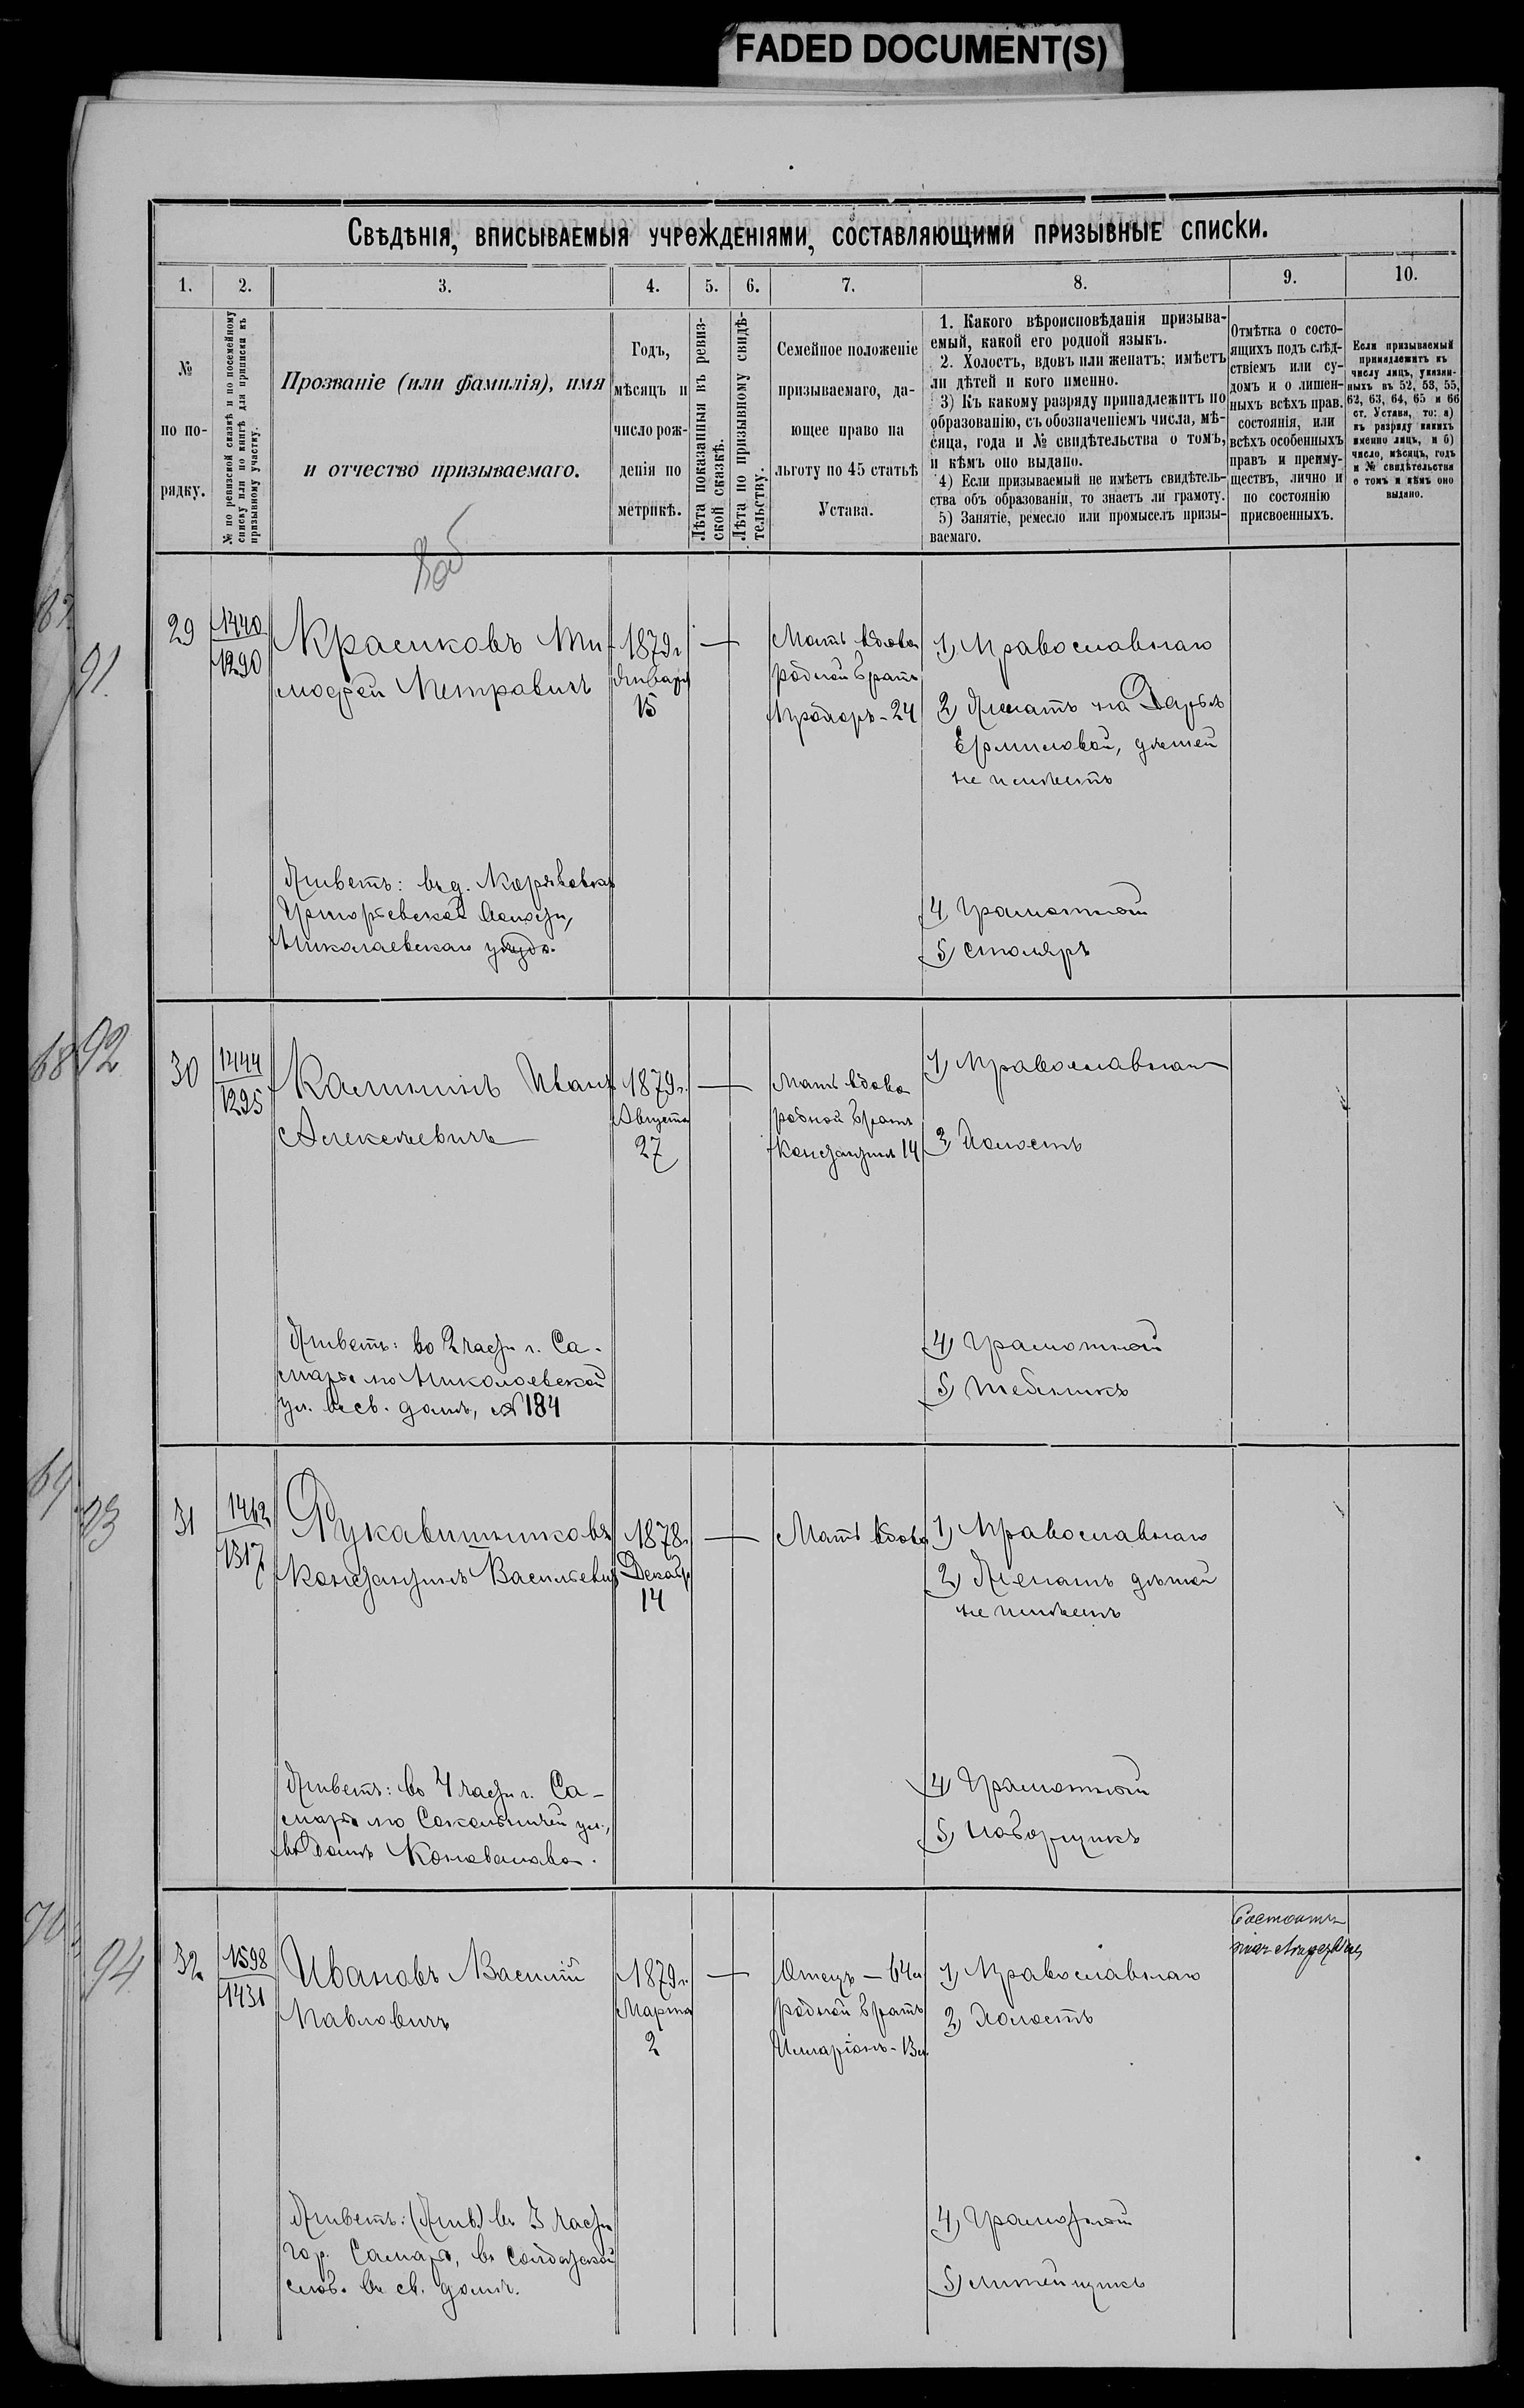 FADED DOCUMENT(S)
Свѣдѣнія, вписываемыя учрежденіями, составляющими призывные списки.
1. 2. 3. 4. 5. 6. 7. 8. 9. 10.
№
по по-
рядку.
№ по ревизской сказкѣ и по посемейному
списку или по книгѣ для приписки къ
призывному участку.
Прозваніе (или фамилія), имя
и отчество призываемаго.
Годъ,
мѣсяцъ и
число рож-
денія по
метрикѣ.
Лѣта показанныя въ ревиз-
ской сказкѣ.
Лѣта по призывному свидѣ-
тельству.
Семейное положеніе
призываемаго, да-
ющее право на
льготу по 45 статьѣ
Устава.
1. Какого вѣроисповѣданія призыва-
емый, какой его родной языкъ.
2. Холостъ, вдовъ или женатъ; имѣетъ
ли дѣтей и кого именно.
3) Къ какому разряду принадлежитъ по
образованію, съ обозначеніемъ числа, мѣ-
сяца, года и № свидѣтельства о томъ,
и кѣмъ оно выдано.
4) Если призываемый не имѣетъ свидѣтель-
ства объ образованіи, то знаетъ ли грамоту.
5) Занятіе, ремесло или промыселъ призы-
ваемаго.
Отмѣтка о состо-
ящихъ подъ слѣд-
ствіемъ или су-
домъ и о лишен-
ныхъ всѣхъ прав.
состоянія, или
всѣхъ особенныхъ
правъ и преиму-
ществъ, лично и
по состоянію
присвоенныхъ.
Если призываемый
принадлежитъ къ
числу лицъ, указан-
ныхъ въ 52, 53, 55,
62, 63, 64, 65 и 66
ст. Устава, то: а)
къ разряду какихъ
именно лицъ, и б)
число, мѣсяцъ, годъ
и № свидѣтельства
о томъ и кѣмъ оно
выдано.
91.
29
1440
1290
Красиковъ Ти-
мофей Петровичъ
1879г
Января
15
Мать вдова
родной братъ
Прохоръ - 24
1) Православнаго
2) Женатъ на Дарьѣ
Ермиловой, дѣтей
не имѣетъ
Живетъ: въ д.
Николаевскаго уѣзда.
4) Грамотной
5) столяръ
68 92
30
1444
1295
Калининъ Иванъ
Алексѣевичъ
1879г.
Августа
27
Мать вдова
родной братъ
Константинъ 14
1) Православнаго
2) Холостъ
Живетъ: во 2 части г. Са-
марѣ по Николаевской
ул. въ св. домѣ, № 184
4) Грамотной
5)
69 93
31
1462
1317
Рукавишниковъ
Константинъ Васильевичъ
1878г.
Декабр.
14
Мать вдова
1) Православнаго
2) Женатъ дѣтей
не имѣетъ
Живетъ: во 4 части г. Са-
марѣ по Сокольничей ул.,
въ домѣ Коновалова.
4) Грамотной
5) Наборщикъ
70 94
32
1598
1431
Ивановъ Василій
Павловичъ
1879г.
Марта
2
Отецъ - 64 л
родной братъ
Илларіонъ - 13 л.
1) Православнаго
2) Холостъ
Состоитъ
Живетъ: (Жив.) въ 3 части
гор. Самары, въ Солдатской
слоб. въ св. домѣ.
4) Грамотной
5) литейщикъ